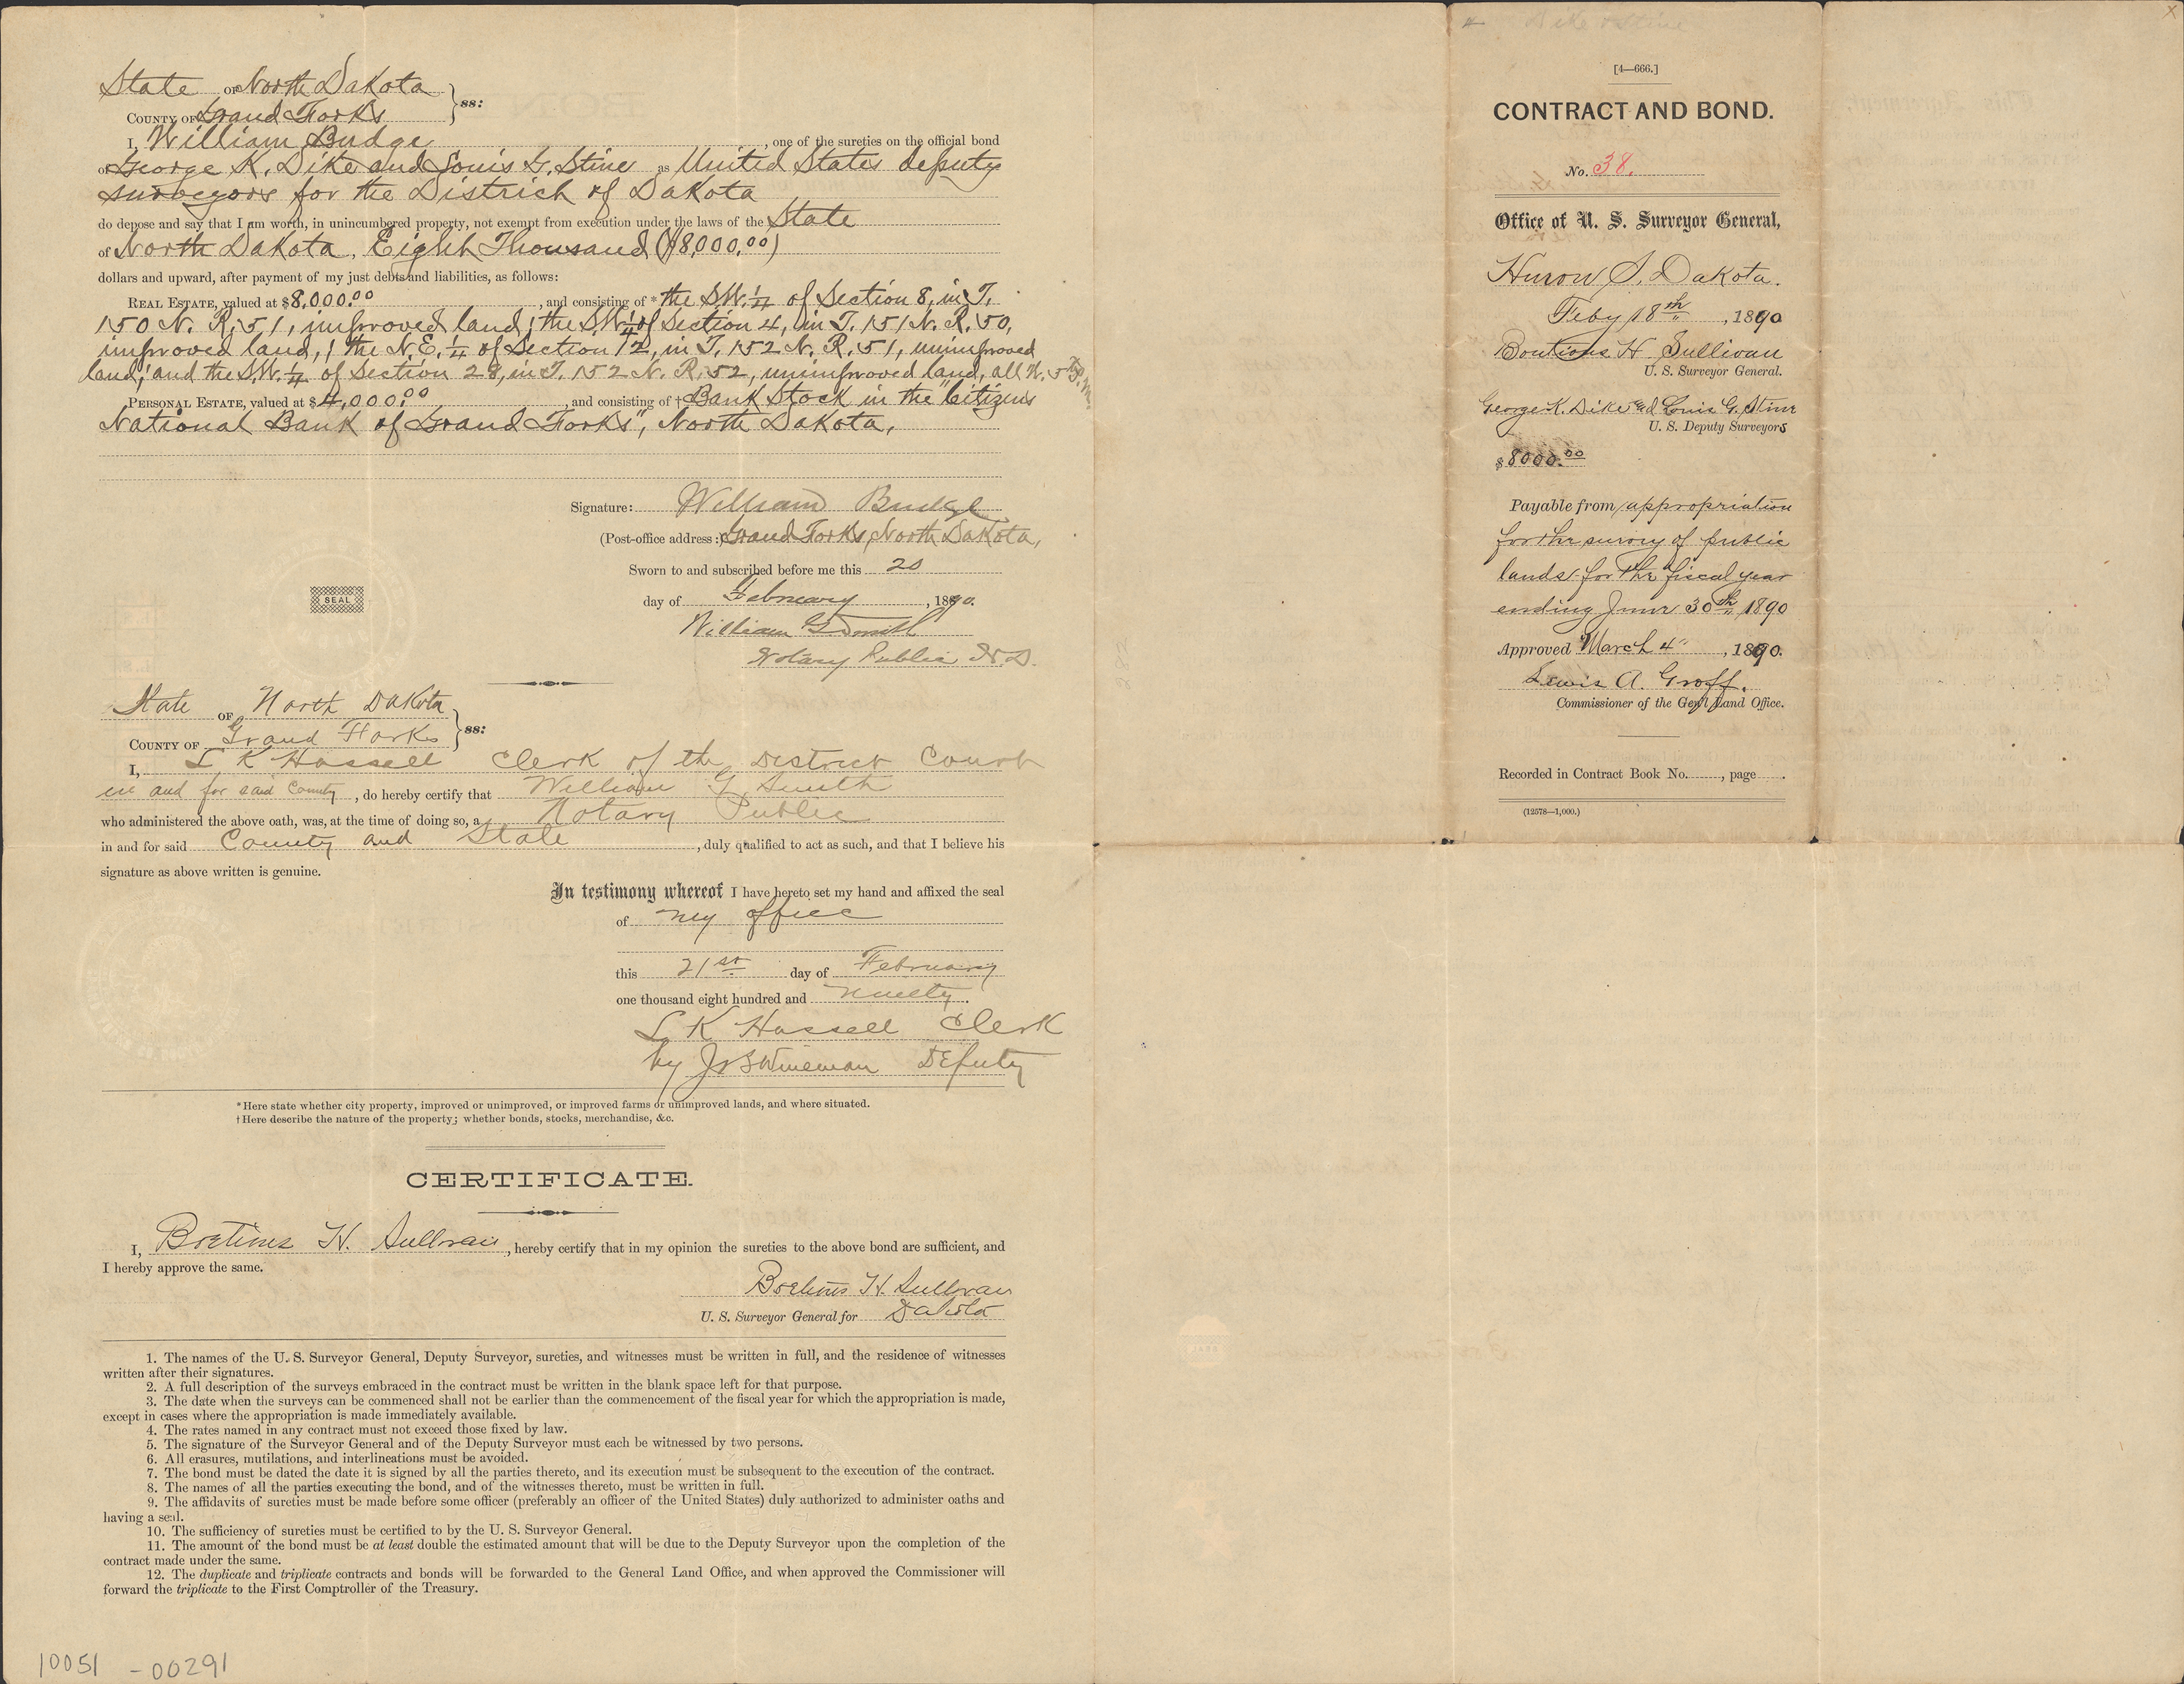 State OF North Dakota
COUNTY OF Grand Forks } ss:
I, William Budge, one of the sureties on the official bond
of George K. Dike and Louis G. Stine as United States deputy
surveyors for the District of Dakota
do depose and say that I am worth, in unincumbered property, not exempt from execution under the laws of the State
of North Dakota, Eight Thousand ($8,000.00)
dollars and upward, after payment of my just debts and liabilities, as follows:
REAL ESTATE, valued at $8,000.00, and consisting of * the S.W. 1/4 of Section 8, in T.
150 N. R. 51, improved land; the S.W. 1/4 of Section 4, in T. 151 N. R. 50,
improved land,; the N.E. 1/4 of Section 12, in T. 152 N. R. 51, unimproved
land; and the S.W. 1/4 of Section 28, in T. 152 N. R. 52, unimproved land, all W. 5th P.M.
PERSONAL ESTATE, valued at $4,000.00, and consisting of † Bank Stock in the "Citizens
National Bank of Grand Forks", North Dakota,
Signature: William Budge
(Post-office address:) Grand Forks, North Dakota,
Sworn to and subscribed before me this 20
SEAL
day of February, 1890.
William G Smith
Notary Public N.D.
State OF North Dakota
COUNTY OF Grand Forks } ss:
I, L K Hassell Clerk of the District Court
in and for said County, do hereby certify that William G. Smith
who administered the above oath, was, at the time of doing so, a Notary Public
in and for said County and State, duly qualified to act as such, and that I believe his
signature as above written is genuine.
In testimony whereof I have hereto set my hand and affixed the seal
of my office
this 21st day of February
one thousand eight hundred and ninety.
L K Hassell Clerk
by Wineman Deputy
*Here state whether city property, improved or unimproved, or improved farms or unimproved lands, and where situated.
†Here describe the nature of the property; whether bonds, stocks, merchandise, &c.
CERTIFICATE.
I, Boetius H. Sullivan, hereby certify that in my opinion the sureties to the above bond are sufficient, and
I hereby approve the same.
Boetius H. Sullivan
U. S. Surveyor General for Dakota
1. The names of the U. S. Surveyor General, Deputy Surveyor, sureties, and witnesses must be written in full, and the residence of witnesses
written after their signatures.
2. A full description of the surveys embraced in the contract must be written in the blank space left for that purpose.
3. The date when the surveys can be commenced shall not be earlier than the commencement of the fiscal year for which the appropriation is made,
except in cases where the appropriation is made immediately available.
4. The rates named in any contract must not exceed those fixed by law.
5. The signature of the Surveyor General and of the Deputy Surveyor must each be witnessed by two persons.
6. All erasures, mutilations, and interlineations must be avoided.
7. The bond must be dated the date it is signed by all the parties thereto, and its execution must be subsequent to the execution of the contract.
8. The names of all the parties executing the bond, and of the witnesses thereto, must be written in full.
9. The affidavits of sureties must be made before some officer (preferably an officer of the United States) duly authorized to administer oaths and
having a seal.
10. The sufficiency of sureties must be certified to by the U. S. Surveyor General.
11. The amount of the bond must be at least double the estimated amount that will be due to the Deputy Surveyor upon the completion of the
contract made under the same.
12. The duplicate and triplicate contracts and bonds will be forwarded to the General Land Office, and when approved the Commissioner will
forward the triplicate to the First Comptroller of the Treasury.
10051 - 00291
Dike & Stine
[4—666.]
CONTRACT AND BOND.
No. 38.
Office of U. S. Surveyor General,
Huron S. Dakota.
Feby 18th, 1890
Boetious H. Sullivan
U. S. Surveyor General.
George K. Dike and Louis G. Stine
U. S. Deputy Surveyors
$8000.00
Payable from appropriation
for the survey of public
lands for the fiscal year
ending June 30th 1890
Approved March 4", 1890.
Lewis A. Groff.
Commissioner of the Gen'l Land Office.
Recorded in Contract Book No. , page .
(12578—1,000.)